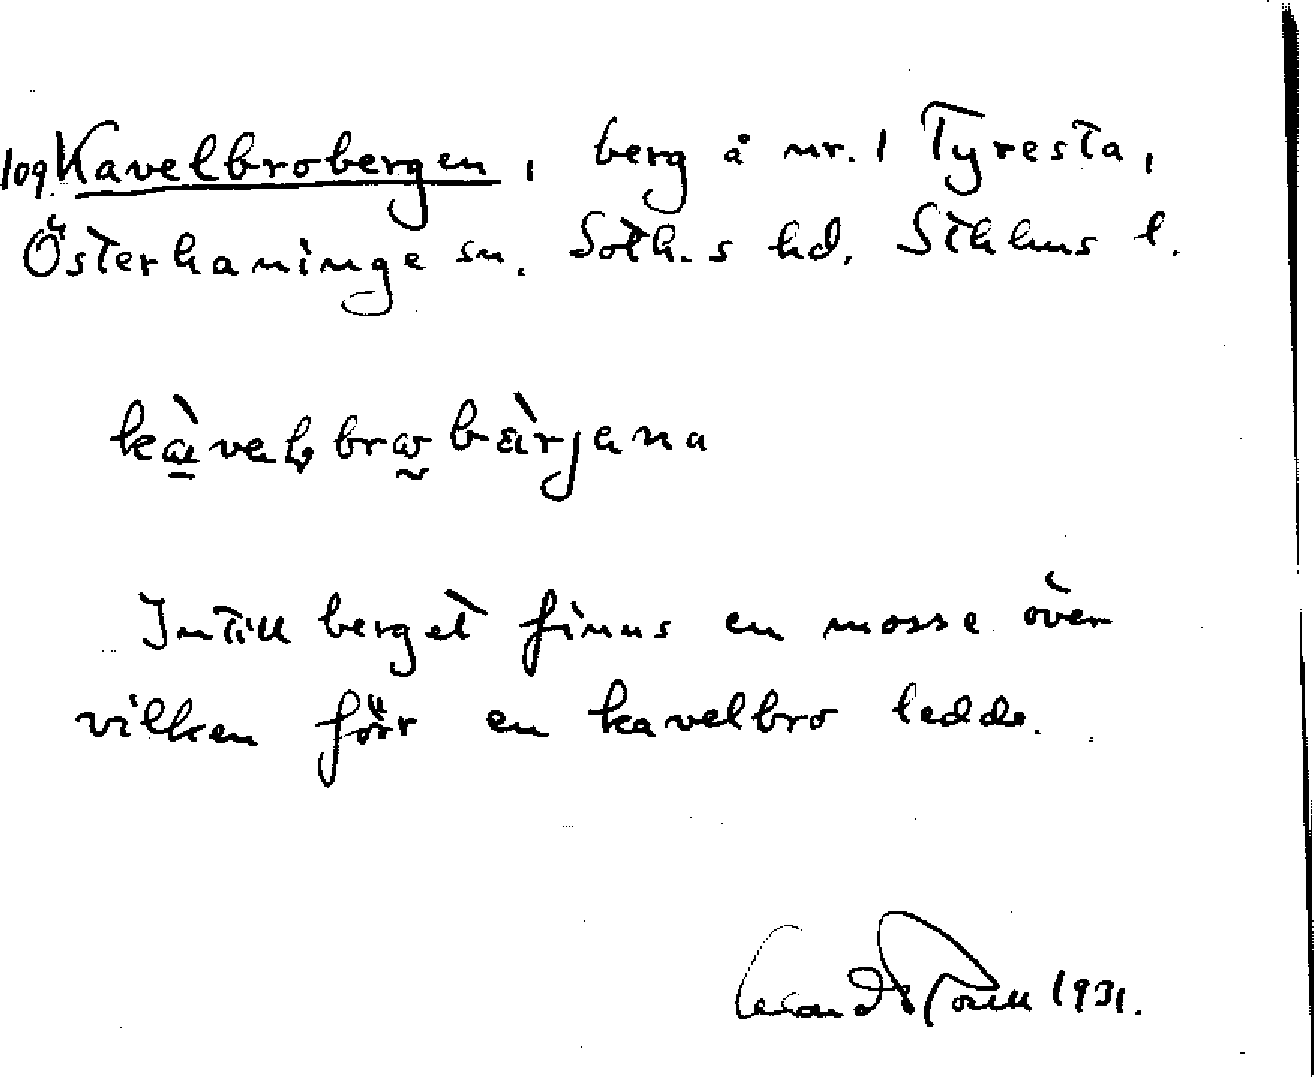 109. Kavelbrobergen, berg å nr. 1 Tyresta,
Österhaninge sn. Soth.s hd. Sthlms l.
Intill berget finns en mosse över
vilken förr en kavelbro ledde.
1931.